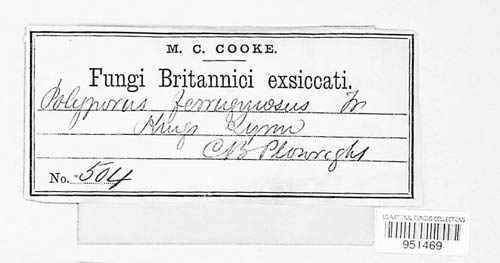 M. C. COOKE.
Fungi Britannici exsiccati.
Polyporus ferruginosus Fr
Kings Lynn
C B Plowright
No. 504
US NATIONAL FUNGUS COLLECTIONS
951469